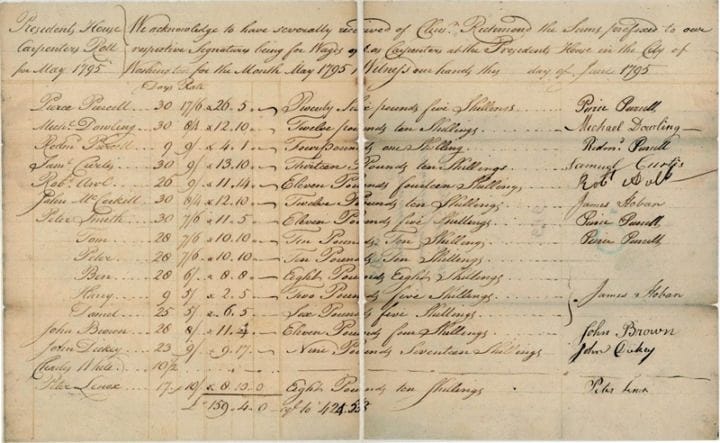 Presidents House
Carpenters Roll
for May 1795
We acknowledge to have severally received of Clers. Richmond the Sums prefixed to our
respective Signatures being for Wages as Carpenters at the Presidents House in the City of
Washington for the Month May 1795 Witness our hands this day of June 1795
Days Rate
Pierce Purcell 30 17/6 £ 26.5 Twenty Six pounds five Shillings Pierce Purcell
Michl. Dowling 30 8/4 £ 12.10 Twelve pounds ten Shillings Michael Dowling
Redm Purcell 9 9/ £ 4.1 Four pounds one Shilling Redmd. Purcell
Saml. Curtis 30 9/ £ 13.10 Thirteen Pounds ten Shillings Samuel Curtis
Robt. Aul 26 9/ £ 11.14 Eleven Pounds fourteen Shillings Robt
30 8/4 £ 12.10 Twelve Pounds ten Shillings James Hoban
Peter Smith 30 7/6 £ 11.5 Eleven Pounds five Shillings Pierce Purcell
Tom 28 7/6 £ 10.10 Ten Pounds Ten Shillings Pierce Purcell
Peter 28 7/6 £ 10.10 Ten Pounds Ten Shillings
Ben 28 6/ £ 8.8 Eight Pounds Eight Shillings
Harry 9 5/ £ 2.5 Two Pounds five Shillings James Hoban
Daniel 25 5/ £ 6.5 Six Pounds five Shillings
John Brown 28 8/ £ 11.4 Eleven Pounds four Shillings John Brown
John Dickey 23 9/ 9.17 Nine Pounds Seventeen Shillings John Dickey
Charly White 10/2
Peter Lenox 17 10/ £ 8.10.0 Eight Pounds ten Shillings Peter Lenox
£ 159.4.0 eql to 424.53